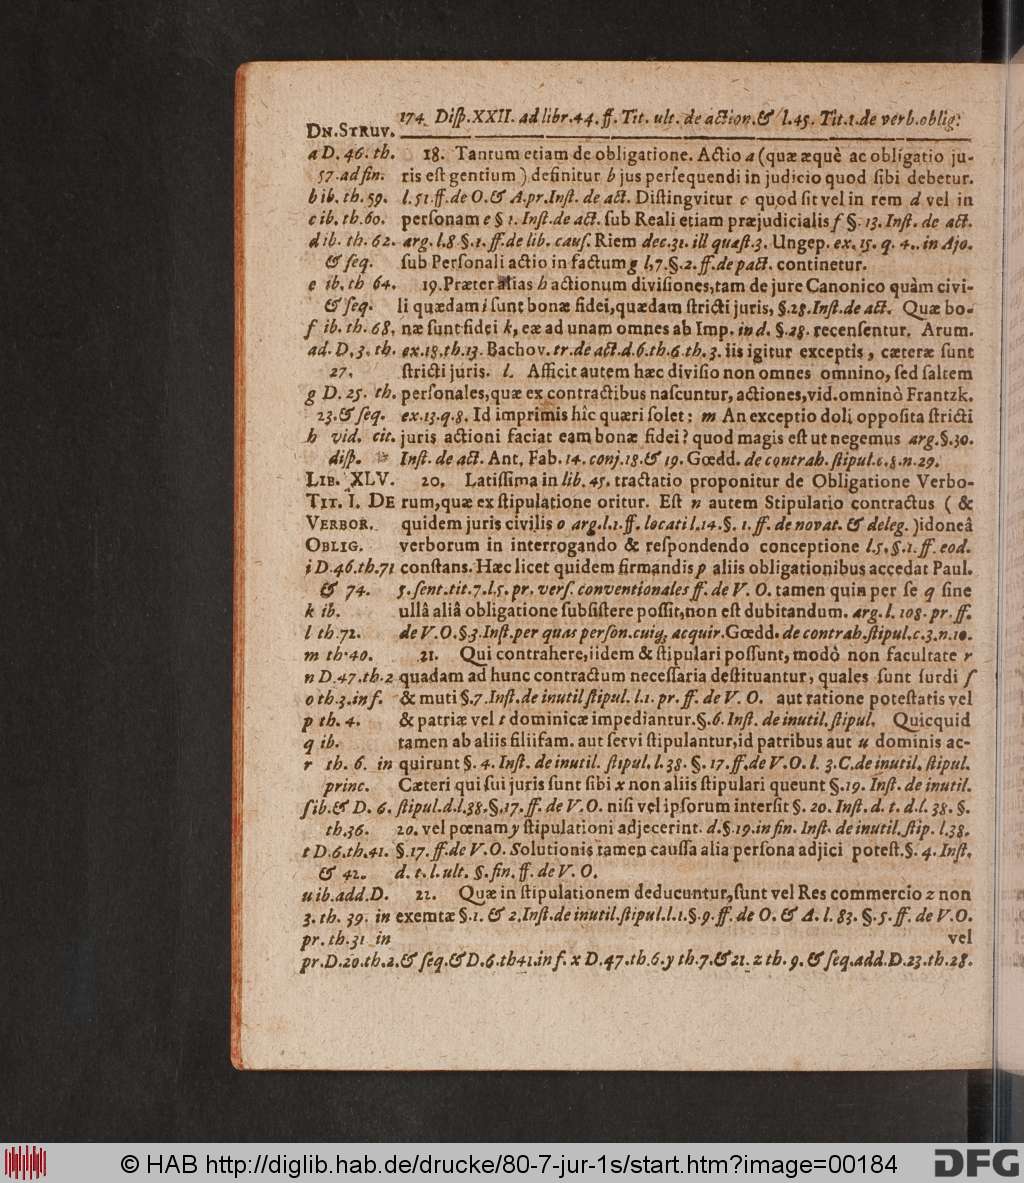 174 Diſp. XXII. ad libr. 44. ff. Tit. ult. de action. & l. 45. Tit. 1. de verb. oblig:
DN. STRUV.
a D. 46. th.
57. ad fin.
b ib. th. 59.
c ib. th. 60.
d ib. th. 62.
& ſeq.
e ib. th 64.
& ſeq.
f ib. th. 68,
ad. D. 3. th.
27.
g D. 25. th.
23. & ſeq.
h vid. cit.
diſp.
LIB. XLV.
TIT. I. DE
VERBOR.
OBLIG.
i D. 46. th. 71
& 74.
k ib.
l th. 72.
m th. 40.
n D. 47. th. 2
o th. 3. inf.
p th. 4.
q ib.
r th. 6. in
princ.
ſ ib. & D. 6.
th. 36.
t D. 6. th. 41.
& 42.
u ib. add. D.
3. th. 39. in
pr. th. 31 in
18. Tantum etiam de obligatione. Actio a (quæ æquè ac obligatio ju-
ris eſt gentium) definitur b jus perſequendi in judicio quod ſibi debetur.
l. 51. ff. de O. & A. pr. Inſt. de act. Diſtingvitur c quod ſit vel in rem d vel in
perſonam e § 1. Inſt. de act. ſub Reali etiam præjudicialis f §. 13. Inſt. de act.
arg. l. 8 §. 1. ff. de lib. cauſ. Riem dec. 31. ill quæſt. 3. Ungep. ex. 15. q. 4. in Ajo.
ſub Perſonali actio in factum g l, 7. §. 2. ff. de pact. continetur.
19. Præter alias h actionum diviſiones, tam de jure Canonico quàm civi-
li quædam i ſunt bonæ fidei, quædam ſtricti juris, §. 28. Inſt. de act. Quæ bo-
næ ſunt fidei k, eæ ad unam omnes ab Imp. in d. §. 28. recenſentur. Arum.
ex. 18. th. 13. Bachov. tr. de act. d. 6. th. 6 th. 3. iis igitur exceptis, cæteræ ſunt
ſtricti juris. l. Afficit autem hæc diviſio non omnes omnino, ſed ſaltem
perſonales, quæ ex contractibus naſcuntur, actiones, vid. omninò Frantzk.
ex. 13. q. 8. Id imprimis hîc quæri ſolet: m An exceptio doli oppoſita ſtricti
juris actioni faciat eam bonæ fidei? quod magis eſt ut negemus arg. §. 30.
Inſt. de act. Ant. Fab. 14. conj. 18. & 19. Gœdd. de contrah. ſtipul. c. 8. n. 29.
20. Latiſſima in lib. 45. tractatio proponitur de Obligatione Verbo-
rum, quæ ex ſtipulatione oritur. Eſt n autem Stipulatio contractus (&
quidem juris civilis o arg. l. 1. ff. locati l. 14. §. 1. ff. de novat. & deleg.) idoneâ
verborum in interrogando & reſpondendo conceptione l. 5. §. 1. ff. eod.
conſtans. Hæc licet quidem firmandis p aliis obligationibus accedat Paul.
5. ſent. tit. 7. l. 5. pr. verſ. conventionales ff. de V. O. tamen quin per ſe q ſine
ullâ aliâ obligatione ſubſiſtere poſſit, non eſt dubitandum. arg. l. 108. pr. ff.
de V. O. §. 3. Inſt. per quas perſon. cuiq; acquir. Gœdd. de contrah. ſtipul. c. 3. n. 10.
21. Qui contrahere, iidem & ſtipulari poſſunt, modò non facultate r
quadam ad hunc contractum neceſſaria deſtituantur, quales ſunt ſurdi ſ
& muti §. 7. Inſt. de inutil ſtipul. l. 1. pr. ff. de V. O. aut ratione poteſtatis vel
& patriæ vel t dominicæ impediantur. §. 6. Inſt. de inutil. ſtipul. Quicquid
tamen ab aliis filiifam. aut ſervi ſtipulantur, id patribus aut u dominis ac-
quirunt §. 4. Inſt. de inutil. ſtipul. l. 38. §. 17. ff. de V. O. l. 3. C. de inutil. ſtipul.
Cæteri qui ſui juris ſunt ſibi x non aliis ſtipulari queunt §. 19. Inſt. de inutil.
ſtipul. d. l. 38. §. 17. ff. de V. O. niſi vel ipſorum interſit §. 20. Inſt. d. t. d. l. 38. §.
20. vel pœnam y ſtipulationi adjecerint. d. §. 19. in fin. Inſt. de inutil. ſtip. l. 38.
§. 17. ff. de V. O. Solutionis tamen cauſſa alia perſona adjici poteſt. §. 4. Inſt.
d. t. l. ult. §. fin. ff. de V. O.
22. Quæ in ſtipulationem deducuntur, ſunt vel Res commercio z non
exemtæ §. 1. & 2. Inſt. de inutil. ſtipul. l. 1. §. 9. ff. de O. & A. l. 83. §. 5. ff. de V. O.
vel
pr. D. 20. th. 2. & ſeq. & D. 6. th 41. inf. x D. 47. th. 6. y th. 7. & 21. z th. 9. & ſeq. add. D. 23. th. 28.
© HAB http://diglib.hab.de/drucke/80-7-jur-1s/start.htm?image=00184
DFG